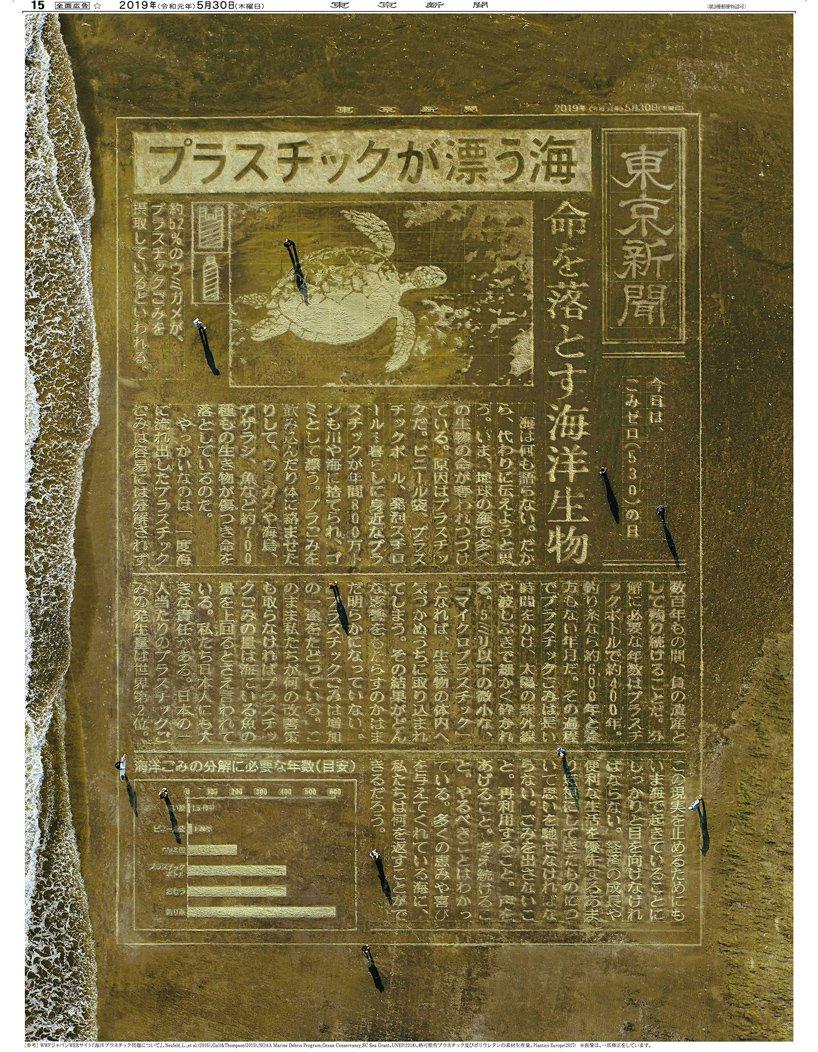 15 全面広告 ☆ 2019年(令和元年)5月30日(木曜日) 東京新聞
東京新聞 2019年(令和元年)5月30日(木曜日)
東京新聞
今日は、
ごみゼロ(530)の日
プラスチックが漂う海
命を落とす海洋生物
約52%のウミガメが、
プラスチックごみを
摂取しているといわれる。
海は何も語らない。だか
ら、代わりに伝えようと思
う。いま、地球の海で多く
の生物の命が奪われつづけ
ている。原因はプラスチッ
クだ。ビニール袋、プラス
チックボトル、発泡スチロ
ール…暮らしに身近なプラ
スチックが年間800万ト
ンも川や海に捨てられ、ゴ
ミとして漂う。プラごみを
飲み込んだり体に絡ませた
りして、ウミガメや海鳥、
アザラシ、魚など約700
種もの生き物が傷つき命を
落としているのだ。
やっかいなのは、一度海
に流れ出したプラスチック
ごみは容易には分解されず
数百年もの間、負の遺産と
して残り続けることだ。分
解に必要な年数はプラスチ
ックボトルで約400年。
釣り糸なら約600年と途
方もない年月だ。その過程
でプラスチックごみは長い
時間をかけ、太陽の紫外線
や波しぶきで細かく砕かれ
る。5ミリ以下の微小な、
「マイクロプラスチック」
となれば、生き物の体内へ
気づかぬうちに取り込まれ
てしまう。その結果がどん
な影響をもたらすのかはま
だ明らかになっていない。
プラスチックごみは増加
の一途をたどっている。こ
のまま私たちが何の改善策
も取らなければプラスチッ
クごみの量は海にいる魚の
量を上回るとさえ言われて
いる。私たち日本人にも大
きな責任がある。日本の一
人当たりのプラスチックご
みの発生量は世界第2位。
この現実を止めるためにも
いま海で起きていることに
しっかりと目を向けなけれ
ばならない。経済の成長や
便利な生活を優先するあま
り犠牲にしてきたものにつ
いて思いを馳せなければな
らない。ごみを出さないこ
と。再利用すること。声を
あげること。考え続けるこ
と。やるべきことはわかっ
ている。多くの恵みや喜び
を与えてくれている海に、
私たちは何を返すことがで
きるだろう。
海洋ごみの分解に必要な年数(目安)
0 100 200 300 400 500 600
ビニール袋
プラスチックボトル
おむつ
釣り糸